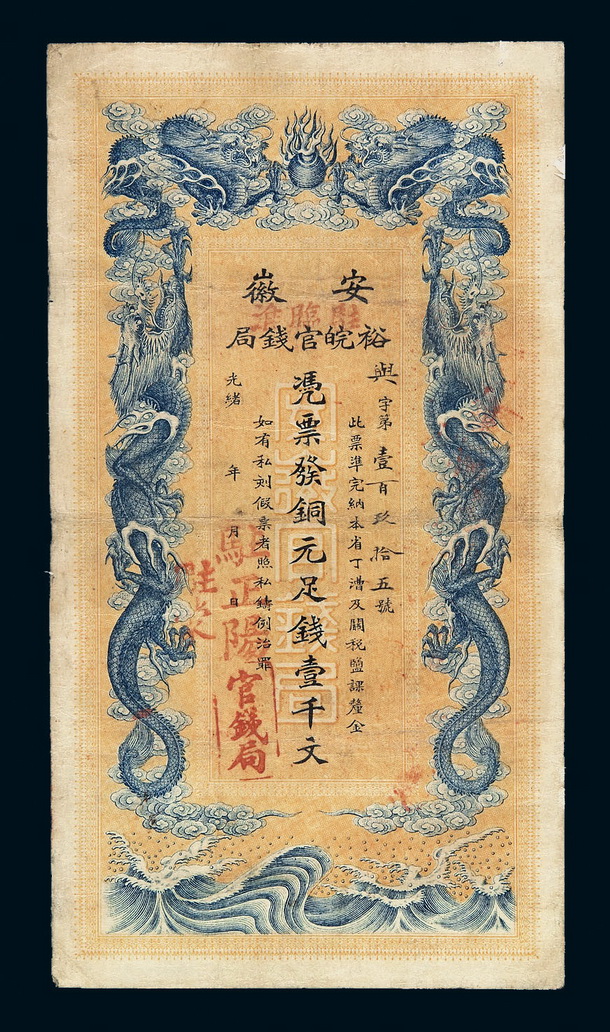 安徽
裕皖官錢局
與字第壹百玖拾五號
此票準完納本省丁漕及關稅鹽課釐金
憑票發銅元足錢壹千文
如有私刻假票者照私鑄例治罪
光緒 年 月 日
駐臨淮
駐正陽
官錢局